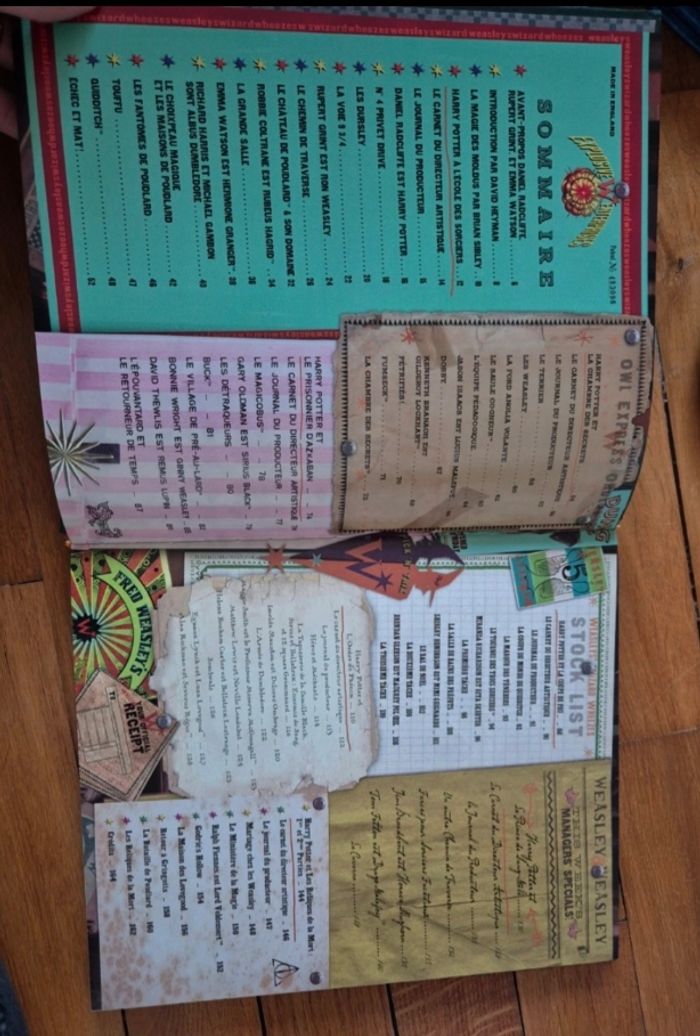 MADE IN ENGLAND
SOMMAIRE
AVANT-PROPOS DANIEL RADCLIFFE,
RUPERT GRINT, ET EMMA WATSON 6
INTRODUCTION PAR DAVID HEYMAN 8
LA MAGIE DES MOLDUS PAR BRIAN SIBLEY 10
HARRY POTTER À L'ÉCOLE DES SORCIERS 12
LE CARNET DU DIRECTEUR ARTISTIQUE 14
LE JOURNAL DU PRODUCTEUR 15
DANIEL RADCLIFFE EST HARRY POTTER 16
N° 4 PRIVET DRIVE 18
LES DURSLEY 20
LA VOIE 9 3/4 22
RUPERT GRINT EST RON WEASLEY 24
LE CHEMIN DE TRAVERSE 26
LE CHÂTEAU DE POUDLARD™ & SON DOMAINE 32
ROBBIE COLTRANE EST RUBEUS HAGRID™ 34
LA GRANDE SALLE 36
EMMA WATSON EST HERMIONE GRANGER™ 38
RICHARD HARRIS ET MICHAEL GAMBON
SONT ALBUS DUMBLEDORE 40
LE CHOIXPEAU MAGIQUE
ET LES MAISONS DE POUDLARD 42
LES FANTÔMES DE POUDLARD 46
TOUFFU 47
QUIDDITCH™ 48
ÉCHEC ET MAT! 52
OWL EXPRESS OR
DUNG
HARRY POTTER ET
LA CHAMBRE DES SECRETS
LE CARNET DU DIRECTEUR ARTISTIQUE
LE JOURNAL DU PRODUCTEUR
LE TERRIER
LES WEASLEY
LA FORD ANGLIA VOLANTE
LE SAULE COGNEUR™
L'ÉQUIPE PÉDAGOGIQUE
JASON ISAACS EST LUCIUS MALFOY
DOBBY 67
KENNETH BRANAGH EST
GILDEROY LOCKHART™
PÉTRIFIÉS! 70
FUMSECK™ 71
LA CHAMBRE DES SECRETS™ 72
HARRY POTTER ET
LE PRISONNIER D'AZKABAN 74
LE CARNET DU DIRECTEUR ARTISTIQUE 76
LE JOURNAL DU PRODUCTEUR 77
LE MAGICOBUS™ 78
GARY OLDMAN EST SIRIUS BLACK™ 79
LES DÉTRAQUEURS 80
BUCK™ 81
LE VILLAGE DE PRÉ-AU-LARD™ 82
BONNIE WRIGHT EST GINNY WEASLEY
DAVID THEWLIS EST REMUS LUPIN
L'ÉPOUVANTARD ET
LE RETOURNEUR DE TEMPS 87
STOCK LIST
HARRY POTTER ET LA COUPE DE FEU 88
LE CARNET DU DIRECTEUR ARTISTIQUE
LE JOURNAL DU PRODUCTEUR
LA COUPE DU MONDE DE QUIDDITCH
LE TOURNOI DES TROIS SORCIERS™
LA PREMIÈRE TÂCHE
LA SALLE DE BAINS DES PRÉFETS
SHIRLEY HENDERSON EST MIMI GEIGNARDE
LE BAL DE NOËL
LA DEUXIÈME TÂCHE
BRENDAN GLEESON EST MAUGREY FOL-ŒIL
LA TROISIÈME TÂCHE
Harry Potter et
l'Ordre du Phénix 110
Le carnet du directeur artistique 112
Le journal du producteur 113
Hiver et Météorite 114
La Tapisserie de la Famille Black,
et 12 Square Grimmaurd 116
Imelda Staunton est Dolores Ombrage 120
L'Armée de Dumbledore 122
Maggie Smith est le Professeur Minerva McGonagall™
Matthew Lewis est Neville Londubat 124
Helena Bonham Carter est Bellatrix Lestrange 125
Evanna Lynch est Luna Lovegood 127
Alan Rickman est Severus Rogue™ 128
FRED WEASLEY'S
YOUR OFFICIAL
RECEIPT
WEASLEY & WEASLEY
THIS WEEK'S
MANAGERS SPECIALS
Harry Potter et
Le Prince de Sang-Mêlé
Le Carnet du Directeur Artistique
Le Journal du Producteur
Jim Broadbent est Horace Slughorn
Tom Felton est Drago Malefoy
La Caverne
Harry Potter et Les Reliques de la Mort
1re et 2me Parties 144
Le carnet du directeur artistique 146
Le journal du producteur 147
Mariage chez les Weasley 148
Le Ministère de la Magie 150
Ralph Fiennes est Lord Voldemort™ 152
Godric's Hollow 154
La Maison des Lovegood 156
Retour à Gringotts 158
La Bataille de Poudlard 160
Les Reliques de la Mort 162
Crédits 164